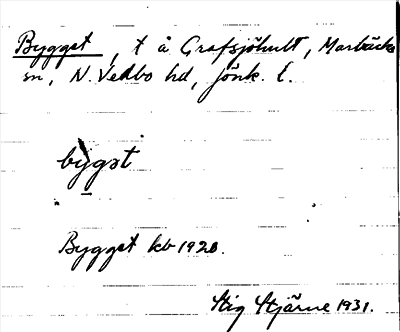 Byggst, t å Grafsjöhult, Marbäcks
sn, N. Vedbo hd, Jönk. l.
bygst
Byggst kb 1920.
Stig Stjärne 1931.